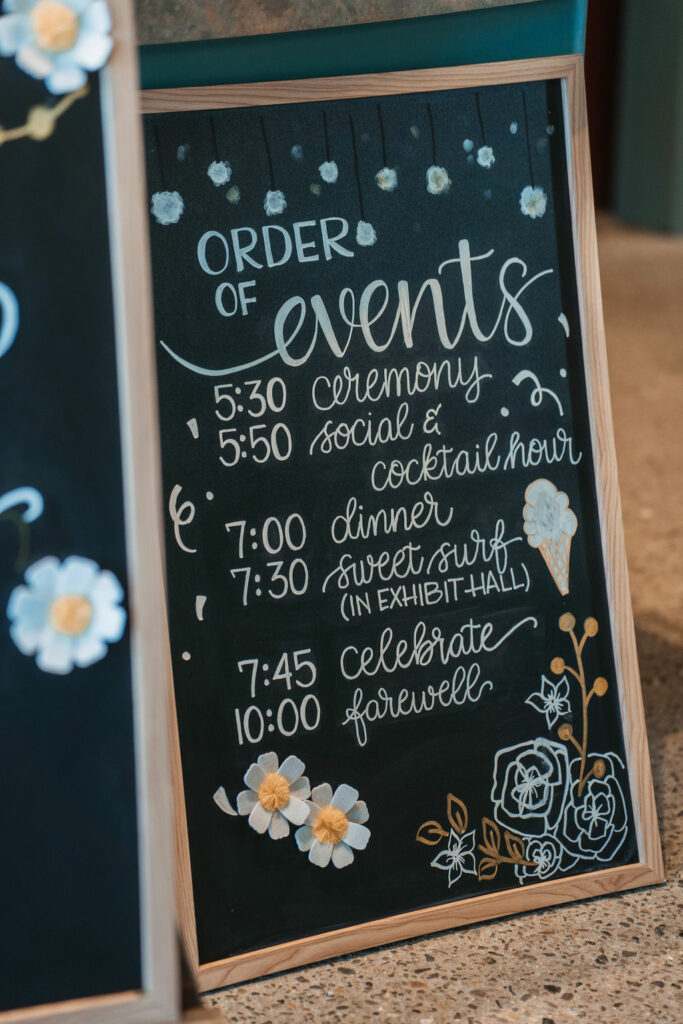 ORDER
OF events
5:30 ceremony
5:50 social &
cocktail hour
7:00 dinner
7:30 sweet surf
(IN EXHIBIT HALL)
7:45 celebrate
10:00 farewell